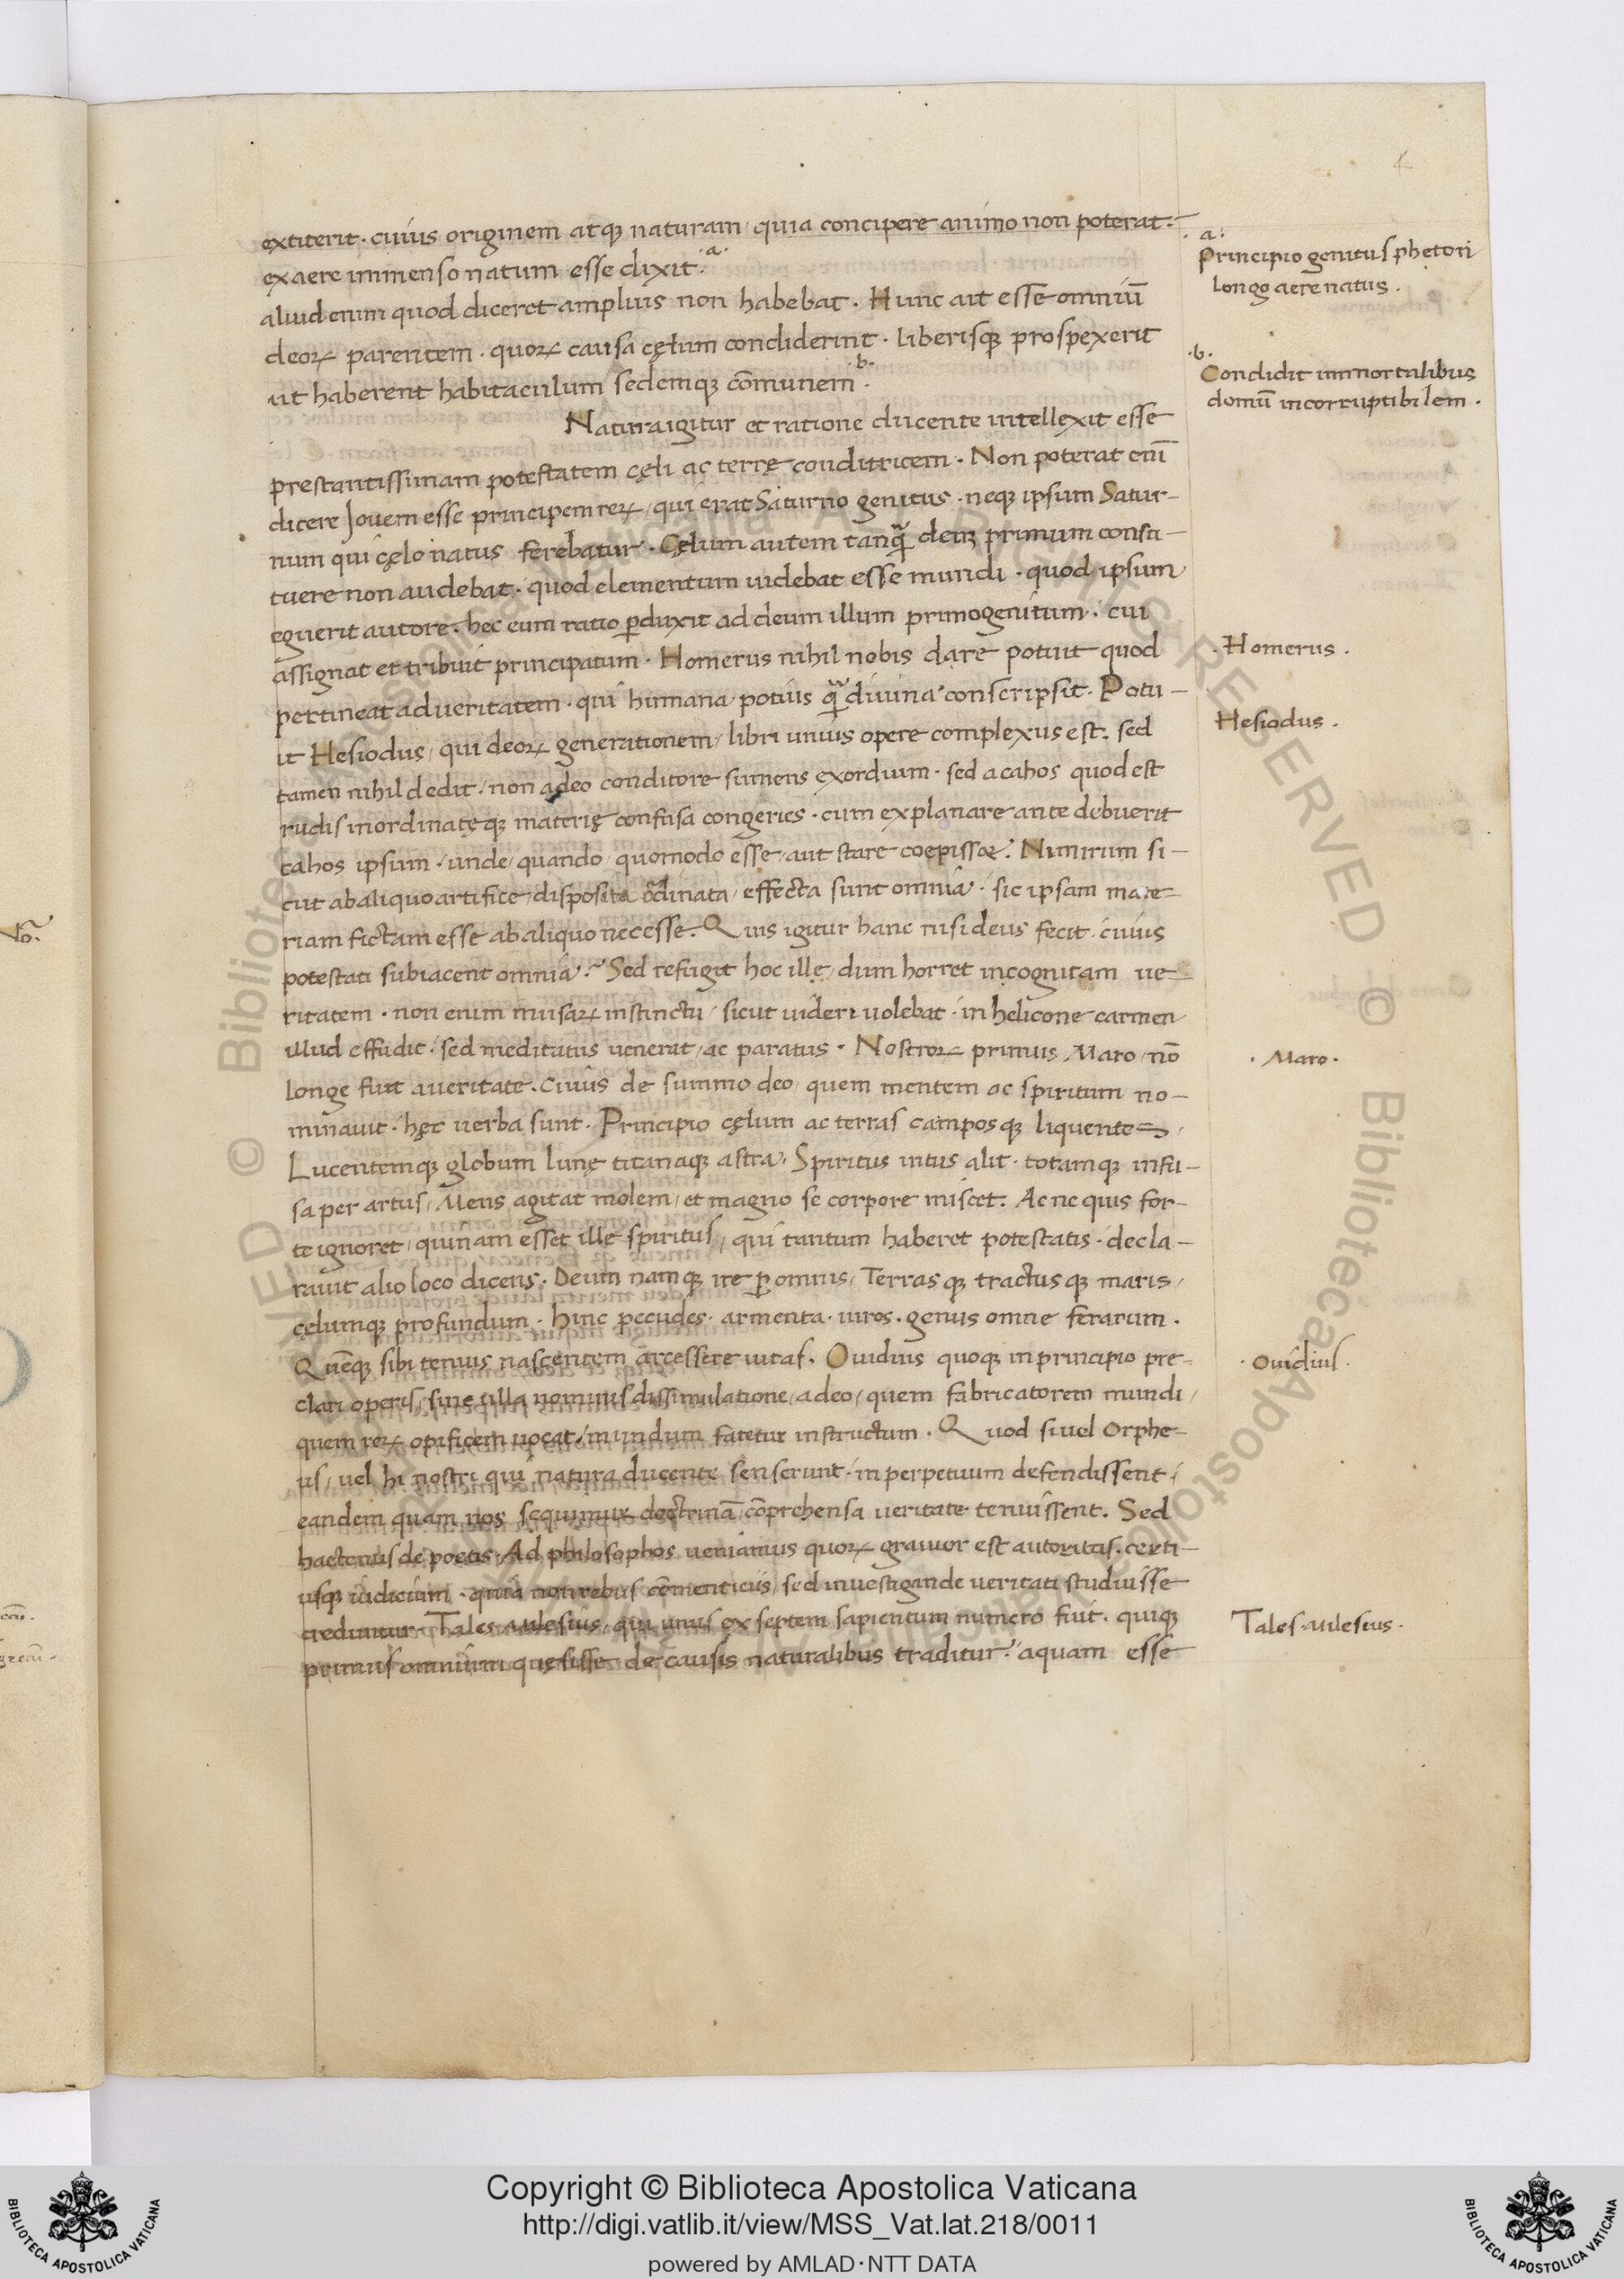 4
extiterit. cuius originem atq; naturam, quia concipere animo non poterat.
ex aere immenso natum esse dixit. a.
aliud enim quod diceret amplius non habebat. Hunc ait esse omniū
deorꝝ parentem. quorꝝ causa cęlum condiderint. liberisq; prospexerit
ut haberent habitaculum sedemq; cōmunem. b.
Natura igitur et ratione ducente intellexit esse
prestantissimam potestatem cęli ac terrę conditricem. Non poterat eni͞
dicere Jouem esse principem rerꝝ, qui erat Saturno genitus. neq; ipsum Satur-
num qui cęlo natus ferebatur. Cęlum autem tanꝗ̃ deum primum consti-
tuere non audebat. quod elementum uidebat esse mundi. quod ipsum
eguerit autore. hec eum ratio ꝑduxit ad deum illum primogenitum. cui
assignat et tribuit principatum. Homerus nihil nobis dare potuit quod
pertineat ad ueritatem. qui humana potius ꝗ̃ diuina conscripsit. Potu-
it Hesiodus, qui deorꝝ generationem, libri unius opere complexus est. sed
tamen nihil dedit. non a deo conditore sumens exordium. sed a cahos quod est
rudis inordinatęq; materię confusa congeries. cum explanare ante debuerit
cahos ipsum. unde, quando, quomodo esse, aut stare coepisset. Nimirum si-
cut ab aliquo artifice, disposita ordinata, effecta sunt omnia. sic ipsam mate-
riam fictam esse ab aliquo necesse. Quis igitur hanc nisi deus fecit. cuius
potestati subiacent omnia. Sed refugit hoc ille, dum horret incognitam ue-
ritatem. non enim musarꝝ instinctu, sicut uideri uolebat. in helicone carmen
illud effudit. sed meditatus uenerat, ac paratus. Nostrorꝝ primus Maro, nō
longe fuit a ueritate. Cuius de summo deo, quem mentem ac spiritum no-
minauit. hęc uerba sunt. Principio cęlum ac terras camposq; liquentes,
Lucentemq; globum lunę titanaq; astra. Spiritus intus alit. totamq; infu-
sa per artus, Mens agitat molem, et magno se corpore miscet. Ac ne quis for-
te ignoret, quinam esset ille spiritus, qui tantum haberet potestatis. decla-
rauit alio loco dicens. Deum namq; ire ꝑ omnis, Terrasq; tractusq; maris,
cęlumq; profundum. Hinc pecudes. armenta. uiros. genus omne ferarum.
Quēq; sibi tenuis nascentem arcessere uitas. Ouidius quoq; in principio pre-
clari operis, sine ulla nominis dissimulatione, a deo, quem fabricatorem mundi,
quem rerꝝ opificem uocat, mundum fatetur instructum. Quod si uel Orphe-
us, uel hi nostri qui natura ducente senserunt. in perpetuum defendissent,
eandem quam nos sequimur doctrinā cōprehensa ueritate tenuissent. Sed
hactenus de poetis. Ad philosophos ueniamus quorꝝ grauior est autoritas. certi-
usq; iudicium. quia non rebus cōmenticiis, sed inuestigande ueritati studuisse
creduntur. Tales Milesius, qui unus ex septem sapientum numero fuit. quiq;
primus omnium quęsisse de causis naturalibus traditur. aquam esse
.a.
Principio genitus phetori
longo aere natus.
.b.
Condidit immortalibus
domū incorruptibilem.
. Homerus.
Hesiodus.
. Maro.
. Ouidius.
Tales. Milesius.
Copyright © Biblioteca Apostolica Vaticana
http://digi.vatlib.it/view/MSS_Vat.lat.218/0011
powered by AMLAD·NTT DATA
BIBLIOTECA APOSTOLICA VATICANA
BIBLIOTECA APOSTOLICA VATICANA